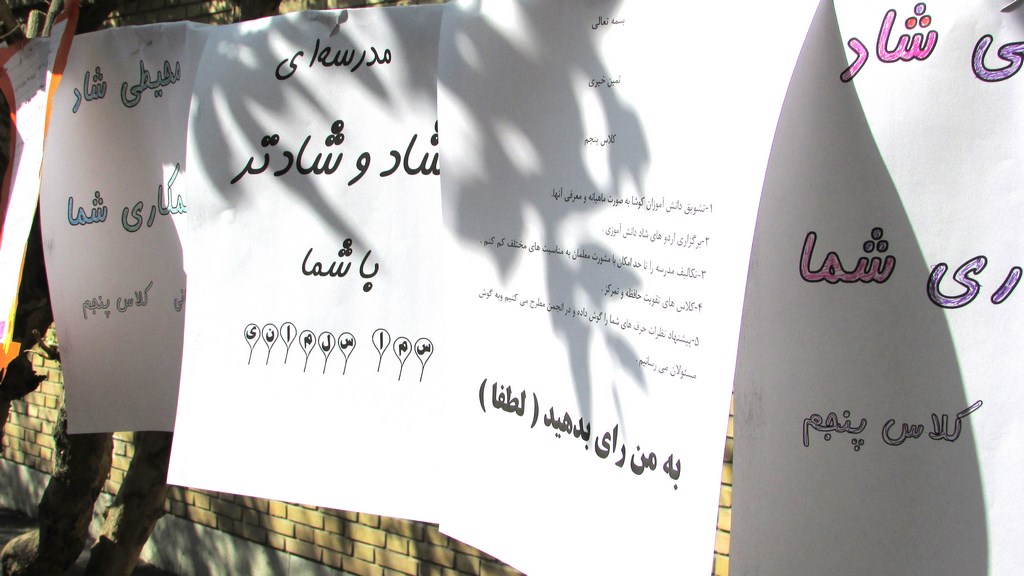 محیطی شاد
همکاری شما
کلاس پنجم
مدرسه‌ای
شاد و شادتر
با شما
سما سلمانی
بسمه تعالی
ثمین خیری
کلاس پنجم
۱-تشویق دانش آموزان کوشا به صورت ماهیانه و معرفی آنها.
۲-برگزاری اردو های شاد دانش آموزی .
۳-تکالیف مدرسه را تا حد امکان با مشورت معلمان به مناسبت های مختلف کم کنم .
۴-کلاس های تقویت حافظه و تمرکز .
۵-پیشنهاد نظرات حرف های شما را گوش داده و در انجمن مطرح می کنیم وبه گوش
مسئولان می رسانیم .
به من رای بدهید ( لطفا )
ی شاد
ری شما
کلاس پنجم